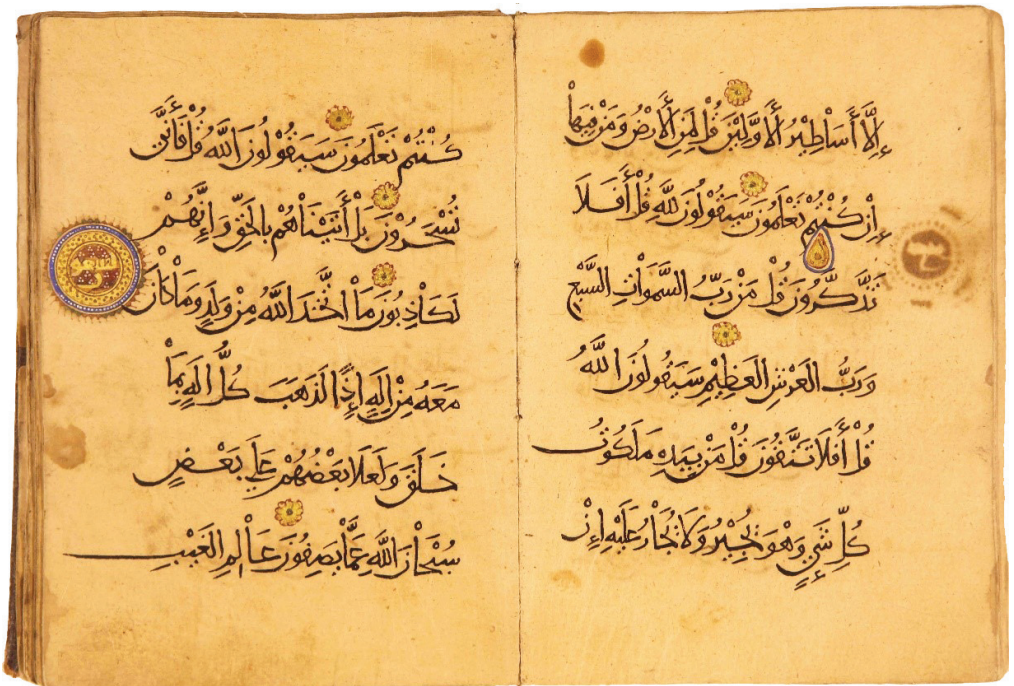 إِلَّا أَسَاطِيْرُ الْأَوَّلِيْنَ قُلْ لِمَنِ الْأَرْضُ وَمَنْ فِيهَا
إِنْ كُنْتُمْ تَعْلَمُونَ سَيَقُولُونَ لِلَّهِ قُلْ أَفَلَا
تَذَّكَّرُونَ قُلْ مَنْ رَبُّ السَّمَوَاتِ السَّبْعِ
وَرَبُّ الْعَرْشِ الْعَظِيْمِ سَيَقُولُونَ اللَّهُ
قُلْ أَفَلَا تَتَّقُونَ قُلْ مَنْ بِيَدِهِ مَلَكُوتُ
كُلِّ شَيْءٍ وَهْوَ يُجِيْرُ وَلَا يُجَارُ عَلَيْهِ إِنْ
كُنْتُمْ تَعْلَمُونَ سَيَقُولُونَ اللَّهُ قُلْ فَأَنَّى
تُسْحَرُوْنَ بَلْ أَتَيْنَاهُمْ بِالْحَقِّ وَإِنَّهُمْ
لَكَاذِبُونَ مَا اتَّخَذَ اللَّهُ مِنْ وَلَدٍ وَمَا كَانَ
مَعَهُ مِنْ إِلَهٍ إِذًا لَذَهَبَ كُلُّ إِلَهٍ بِمَا
خَلَقَ وَلَعَلَا بَعْضُهُمْ عَلَى بَعْضٍ
سُبْحَانَ اللَّهِ عَمَّا يَصِفُونَ عَالِمِ الْغَيْبِ